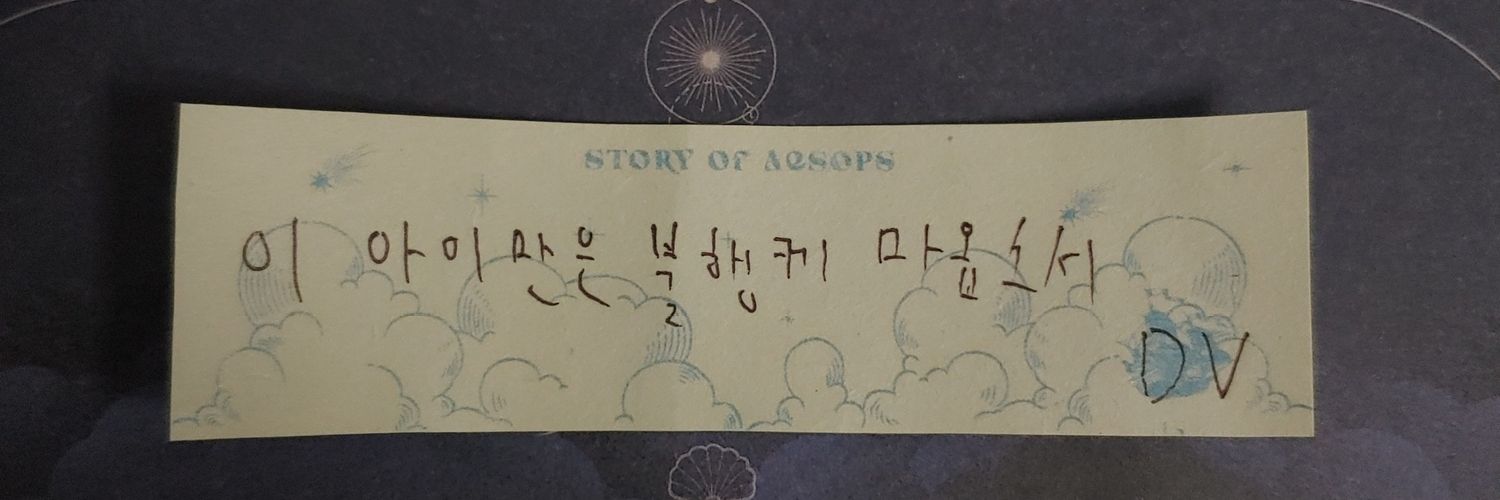 STORY OF AESOPS
이 아이만은 불행케 마옵소서
DV